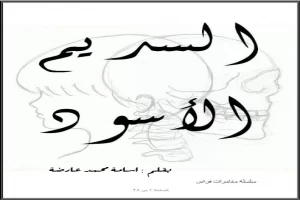 السديم
الأسود
بقلم : اسامة محمد عارضة
سلسلة مغامرات فراس